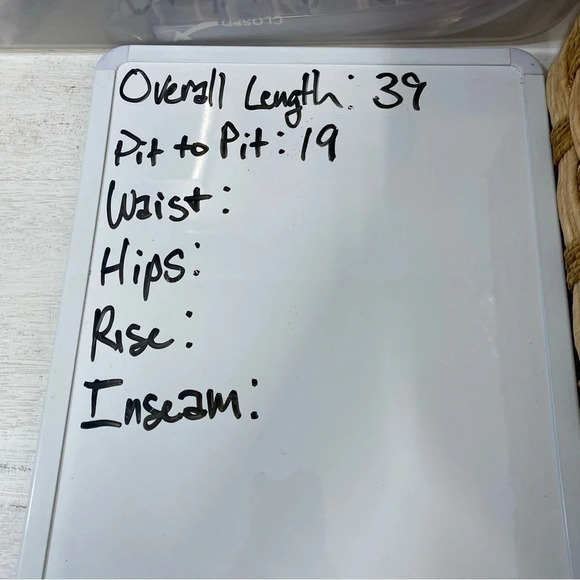 CLOSED
Overall Length: 39
Pit to Pit: 19
Waist:
Hips:
Rise:
Inseam: